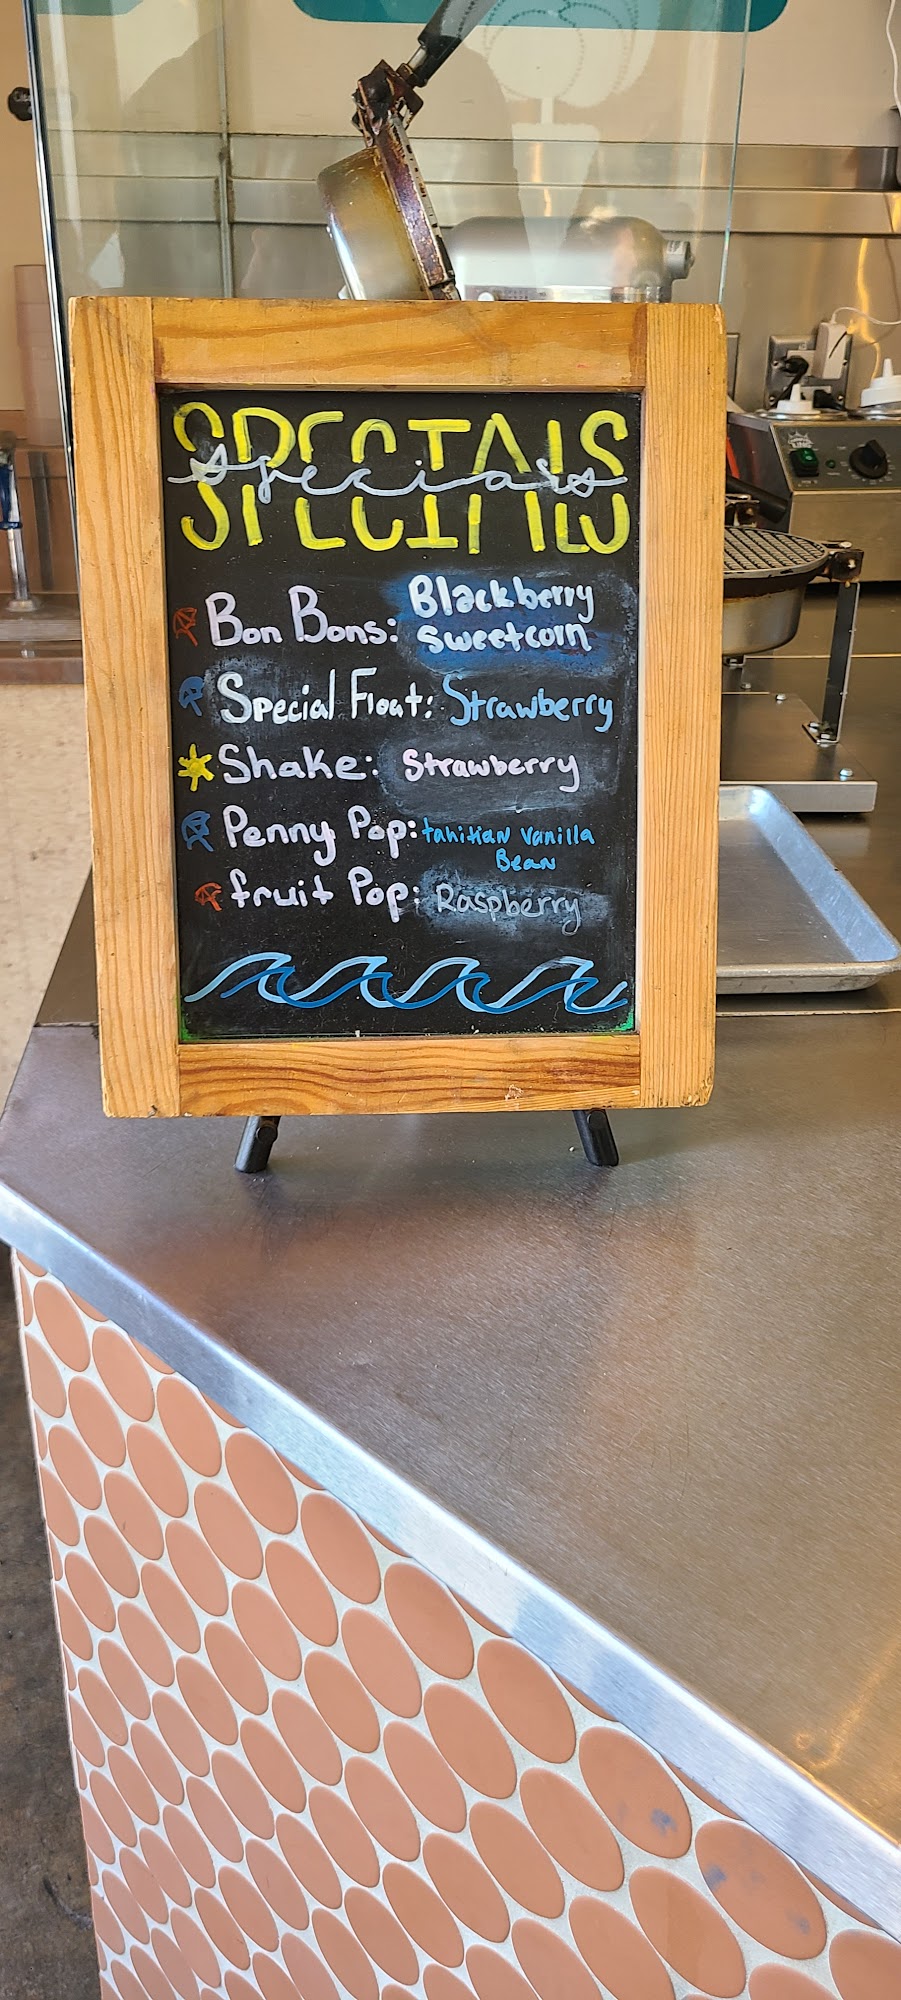 SPECIALS
specials
Bon Bons: Blackberry
sweetcorn
Special Float: Strawberry
Shake: Strawberry
Penny Pop: tahitian vanilla
Bean
fruit Pop: Raspberry